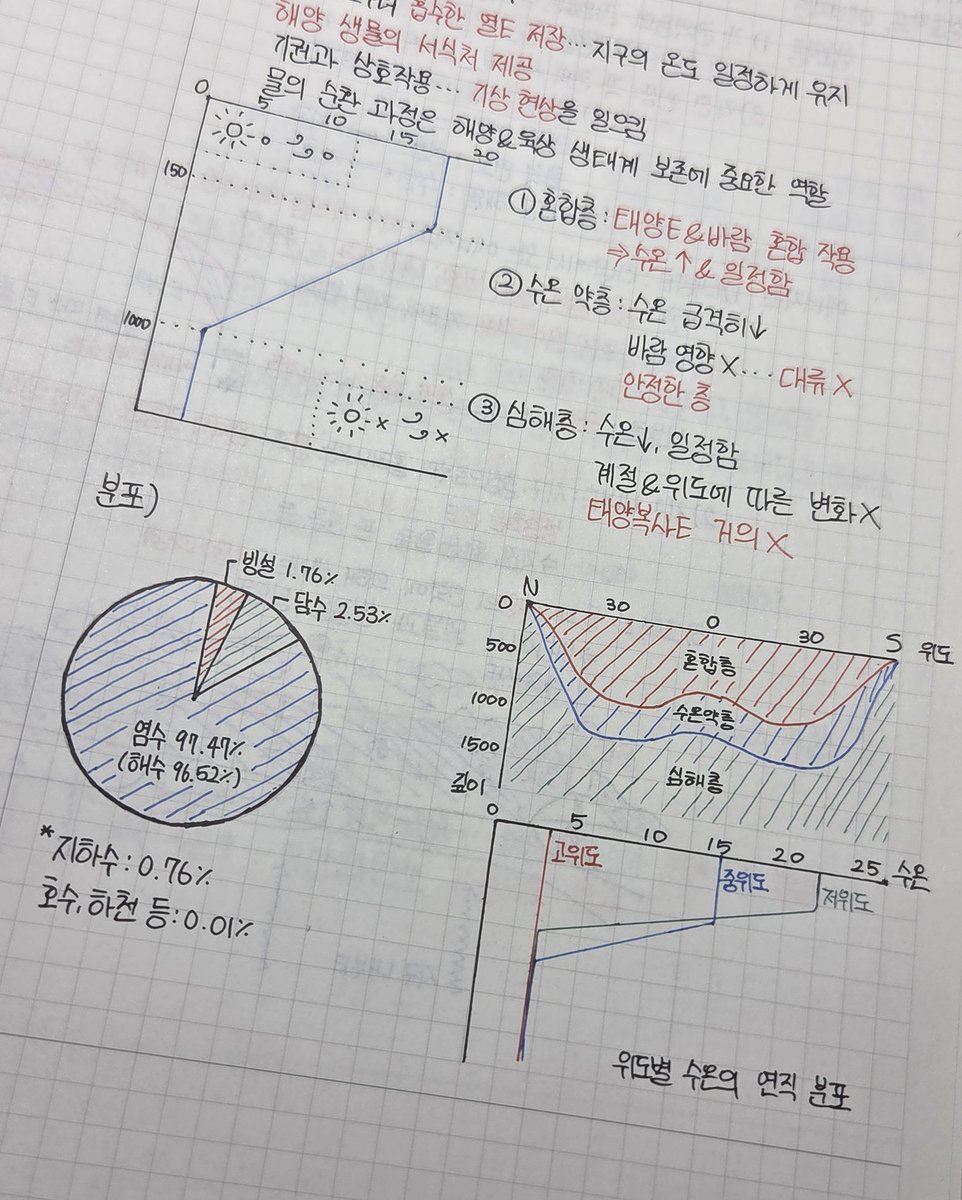 흡수한 열E 저장... 지구의 온도 일정하게 유지
해양 생물의 서식처 제공
기권과 상호작용... 기상 현상을 일으킴
물의 순환 과정은 해양&육상 생태계 보존에 중요한 역할
0 5 10 15 20
150
1000
①혼합층: 태양E&바람 혼합 작용
⇒수온↑& 일정함
②수온 약층: 수온 급격히↓
바람 영향X... 대류X
안정한 층
③심해층: 수온↓, 일정함
계절&위도에 따른 변화X
태양복사E 거의X
분포)
빙설 1.76%
담수 2.53%
염수 97.47%
(해수 96.52%)
*지하수: 0.76%
호수, 하천 등: 0.01%
N 30 0 30 S 위도
0
500
1000
1500
깊이
혼합층
수온약층
심해층
0 5 10 15 20 25 수온
고위도
중위도
저위도
위도별 수온의 연직 분포